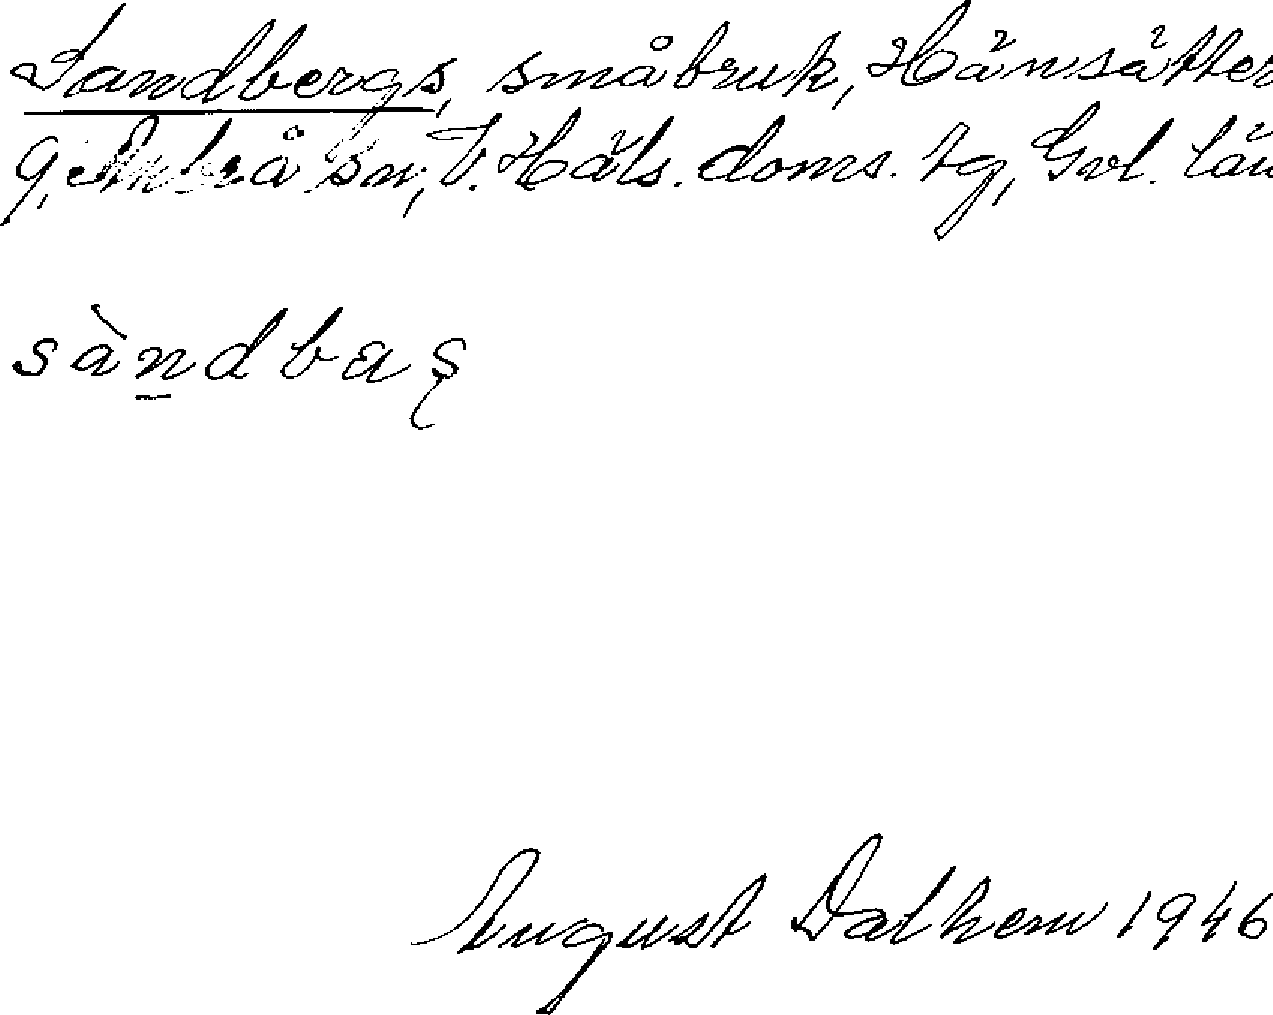 Sandbergs, småbruk, Hänsätter
g, Arbrå sn, V. Häls. doms. tg, Gvl. län
sàn̲dbaş
August Dalhem 1946